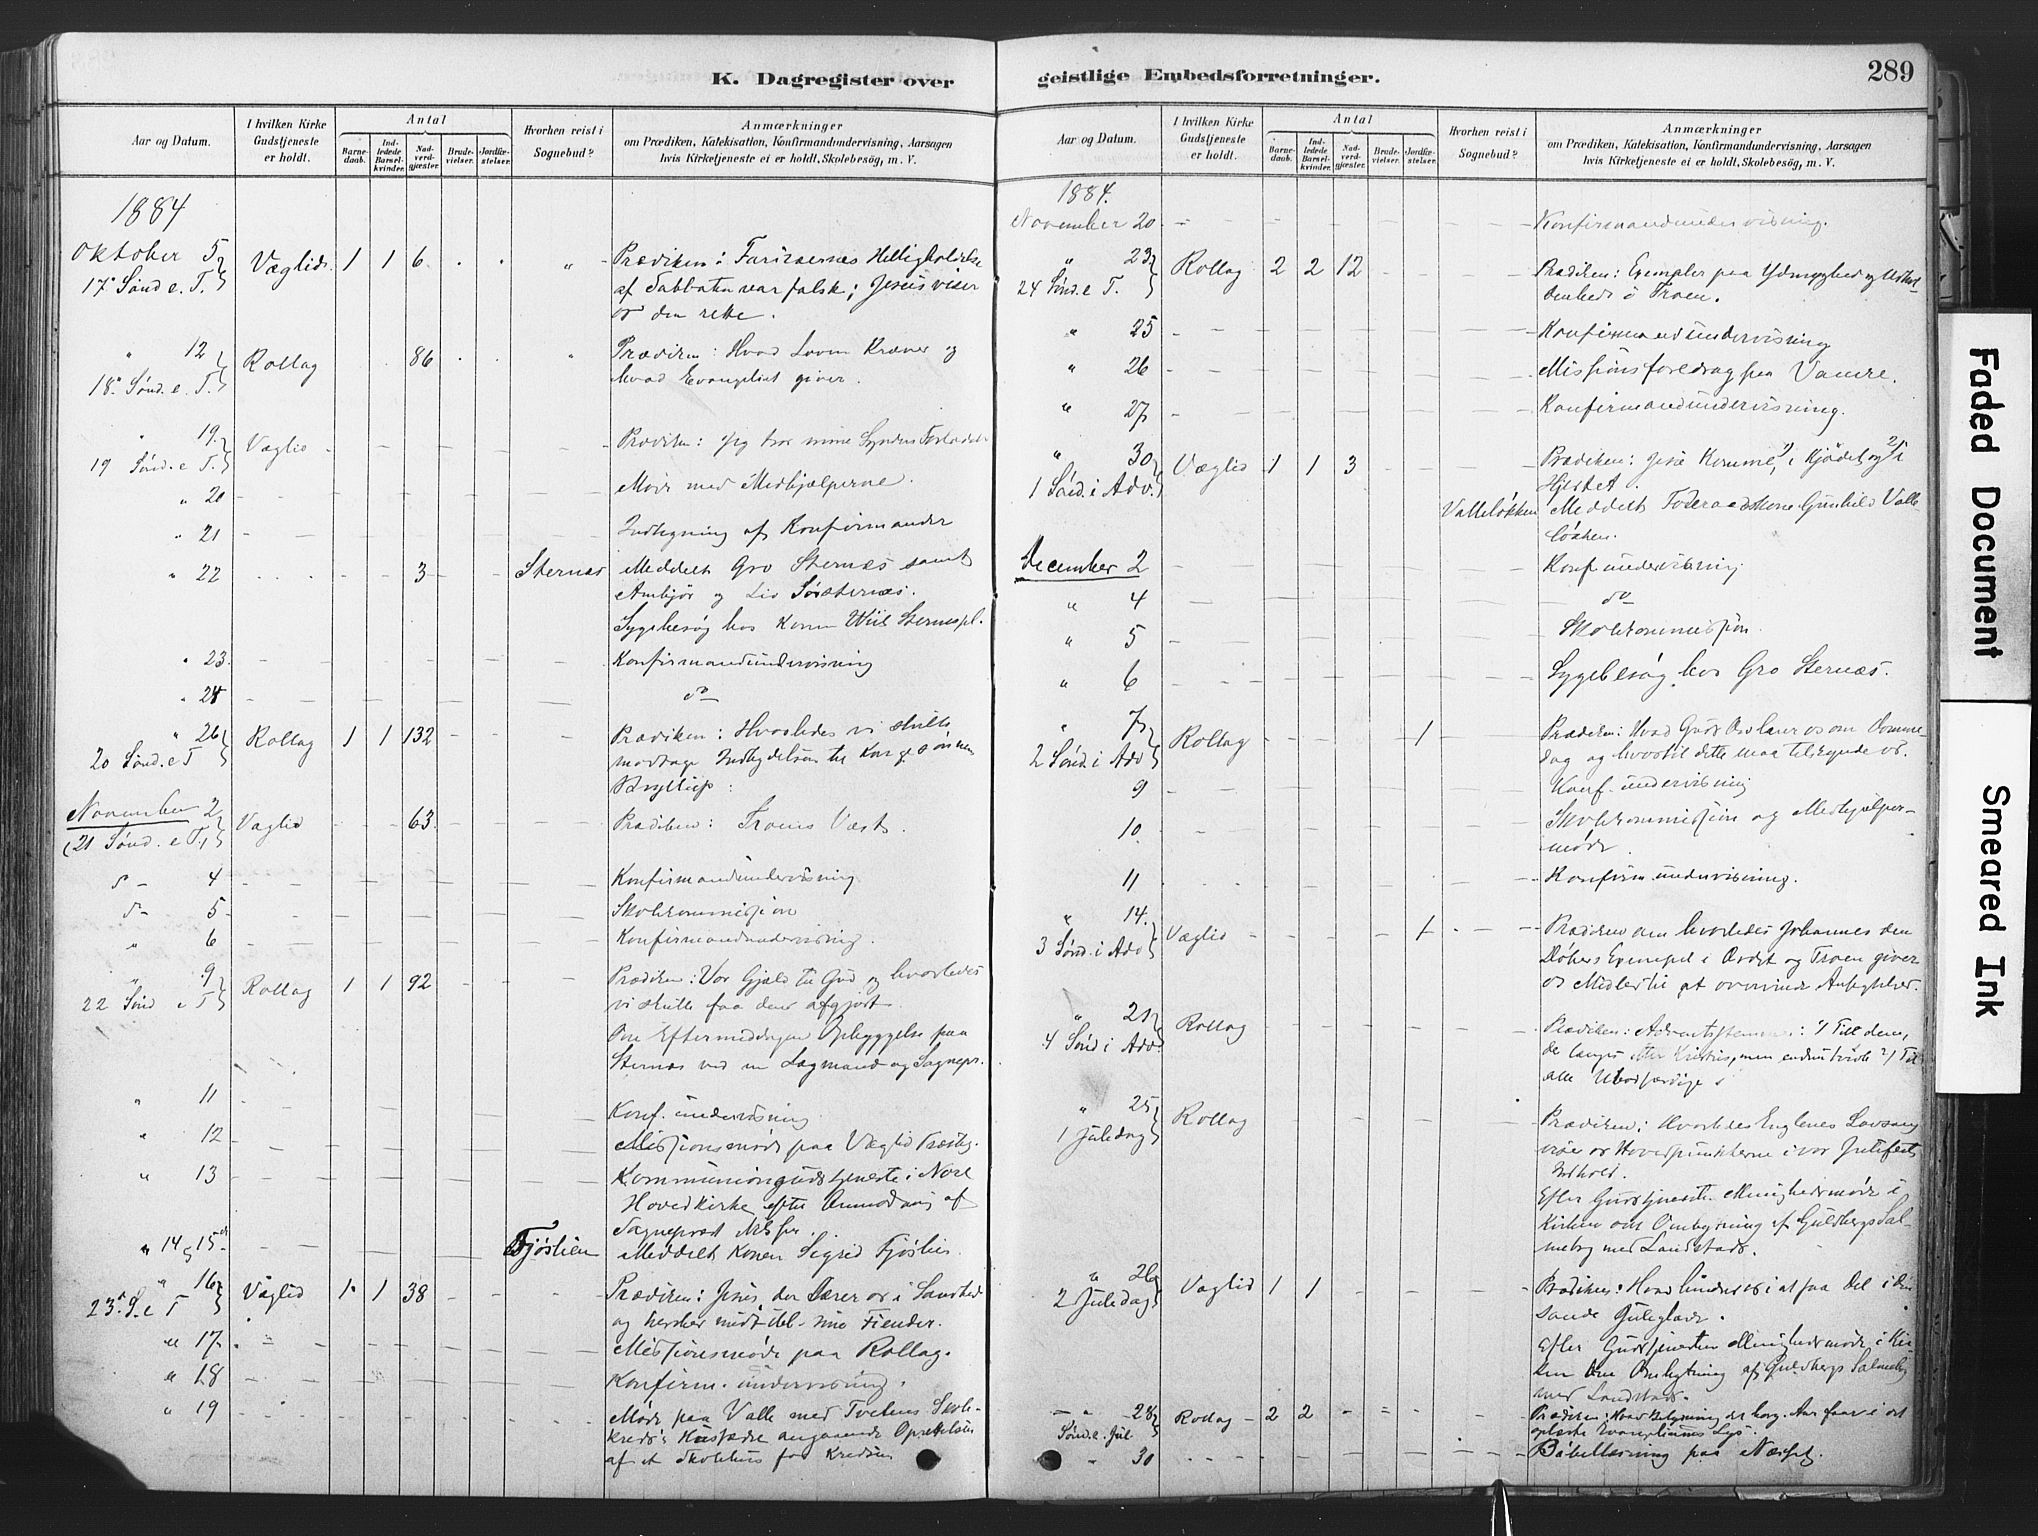 K. Dagregister over
Aar og Datum.
I hvilken Kirke Gudstjeneste er holdt.
Antal
Barnedaab.
Indledede Barselkvinder.
Nadverdgjæster.
Brudevielser.
Jordfæstelser.
Hvorhen reist i Sognebud?
Anmærkninger
om Prædiken, Katekisation, Konfirmandundervisning, Aarsagen
hvis Kirketjeneste ei er holdt, Skolebesög, m. V.
1884
Oktober 5 Væglid 1 1 6 Prædiken: Farisæernes Helligholdelse
17de Sønd e. T. af Sabbaten var falsk; Jesus viser
os den rette.
" 12 Rollag 86 Prædiken: Hvad Loven kræver og
18de Sønd. e. T. hvad Evangeliet giver.
" 19 Væglid Prædiken: Jeg tror mine Synders Forladelse
19 Sønd. e T.
Møde med Medhjælperne.
" 20
" 21 Indtegning af Konfirmander
" 22 3 Sternæs Meddelt Gro Sternæs samt
Ambjør og Liv Sørsternæs.
Sygebesøg hos Konen Sternæspl.
" 23 Konfirmandundervisning
" 24 do
" 26 Rollag 1 1 132 Prædiken: Hvorledes vi skulle
20 Sønd. e T modtage Indbydelsen til Kongesønnens
Bryllup.
November 2 Væglid 63 Prædiken: Troens Væxt.
(21 Sønd. e T.)
do 4 Konfirmandundervisning
do 5 Skolekommission
" 6 Konfirmandundervisning.
" 9 Rollag 1 1 92 Prædiken: Vor Gjæld til Gud og hvorledes
22 Sønd e T vi skulle faa den afgjort.
Om Eftermiddagen Opbyggelse paa
Sternæs ved en Lægmand og Sognepr.
" 11 Konf. undervisning
" 12 Missionsmøde paa Væglid
" 13 Kommuniongudstjeneste i Nore
Hovedkirke efter Anmodning af
Sognepræst
" 14 og 15 Fjøslien Meddelt Konen Sigrid Fjøslien.
" 16 Væglid 1 1 38 Prædiken: Jesus, der Lærer os i Sandhed
23 S. e T og hersker midt ibl. sine Fiender.
" 17 Missionsmøde paa Rollag.
" 18 Konfirm. undervisning.
" 19 Møde paa Valle med Tvetens Skole-
kreds's Husfædre angaaende Oprettelsen
af et Skolehus for Kredsen
geistlige Embedsforretninger.
289
Aar og Datum.
I hvilken Kirke Gudstjeneste er holdt.
Antal
Barnedaab.
Indledede Barselkvinder.
Nadverdgjæster.
Brudevielser.
Jordfæstelser.
Hvorhen reist i Sognebud?
Anmærkninger
om Prædiken, Katekisation, Konfirmandundervisning, Aarsagen
hvis Kirketjeneste ei er holdt, Skolebesög, m. V.
1884.
November 20 Konfirmandundervisning.
" 23 Rollag 2 2 12 Prædiken: Exempler paa Ydmyghed og Udhol-
24 Sønd. e T. denhed i Troen.
" 25 Konfirmandundervisning
" 26 Missionsforedrag paa
" 27 Konfirmandundervisning.
" 30 Væglid 1 1 3 Prædiken: Jesu Komme 1) i Kjødet og 2) i
1 Sønd. i Adv. Hjertet.
Valleløkken Meddelt Føderaadskone Gunhild Valle-
løkken.
December 2 Konf. undervisning
" 4 do
" 5 Skolekommission.
" 6 Sygebesøg hos Gro Sternæs.
" 7 Rollag 1 Prædiken: Hvad Guds Ord lærer os om Domme-
2 Sønd. i Adv dag og hvortil dette maa tilskynde os.
9 Konf. undervisning
10 Skolekommission og Medhjælper-
møde.
11 Konfirm. undervisning.
" 14 Væglid 1 Prædiken om hvorledes Johannes den
3 Sønd. i Adv Døbers Exempel i Ordet og Troen giver
os Midler til at overvinde Anfægtelser.
" 21 Rollag Prædiken: Adventsstemmen: 1) Till dem,
4 Sønd i Adv. der længes efter Kristus, men 2) Til
alle Ubodfærdige
" 25 Rollag Prædiken: Hvorledes Englenes Lovsang
1 Juledag viser os Hovedpunkterne i vor Julefests
Indhold.
Efter Gudstjenesten Menighedsmøde i
Kirken om Ombytning af Guldbergs Sal-
mebog med Landstads.
" 26 Væglid 1 1 Prædiken: Hvad hindrer os i at faa Del i den
2 Juledag sande Juleglæde.
Efter Gudstjenesten Menighedsmøde i Kir-
ken om Ombytning af Guldbergs Salmebog
med Landstads.
" 28 Rollag 2 2 Prædiken:
Sønd e. Jul
" 30 Bibellæsning paa
Faded Document
Smeared Ink